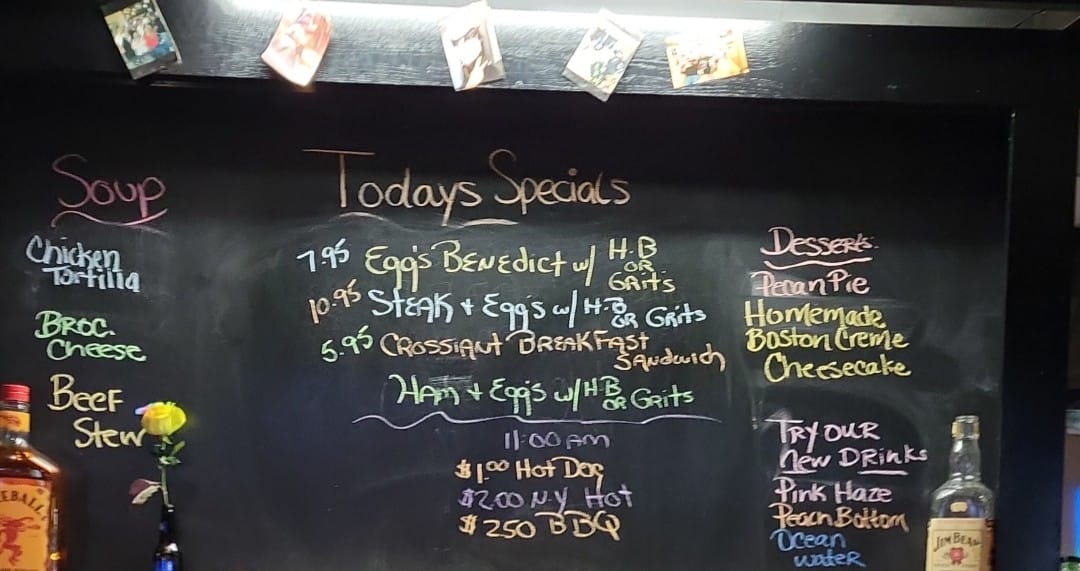 Soup
Chicken
Tortilla
Broc.
Cheese
Beef
Stew
Todays Specials
7.95 Egg's Benedict w/ H.B
OR
Grits
10.95 Steak + Egg's w/ H.B
OR Grits
5.95 Crossiant Breakfast
Sandwich
Ham + Egg's w/ H.B
OR Grits
11:00 AM
$1.00 Hot Dog
$2.00 N.Y Hot
$2.50 BBQ
Desserts:
Pecan Pie
Homemade
Boston Creme
Cheesecake
Try our
New Drinks
Pink Haze
Peach Bottom
Ocean
Water
EBALL
JIM BEAM